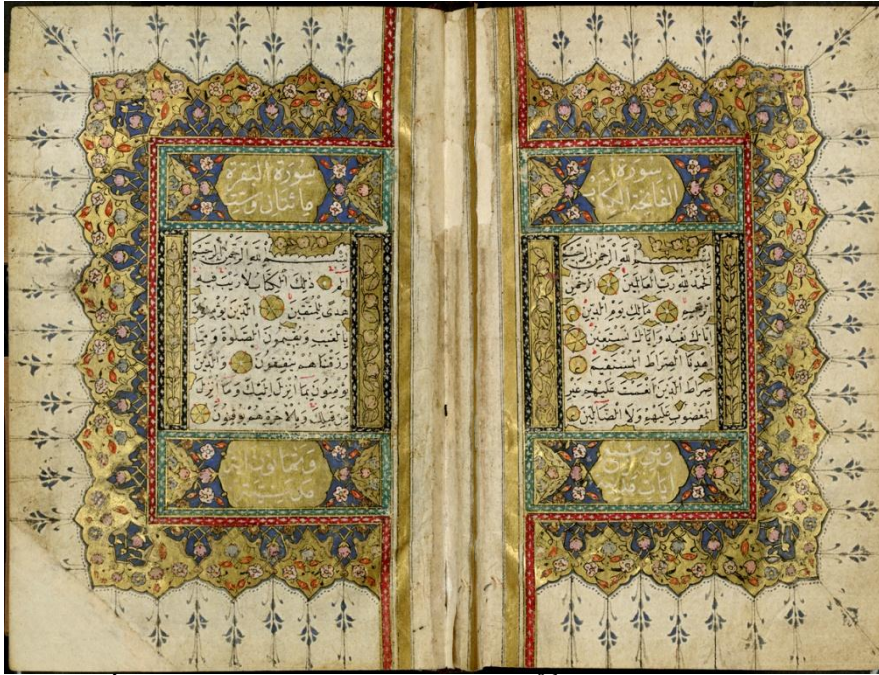 سورة
الفاتحة الكتاب
بِسْمِ اللهِ الرَّحْمٰنِ الرَّحِيمِ
اَلْحَمْدُ لِلّٰهِ رَبِّ الْعَالَمِينَ الرَّحْمٰنِ
الرَّحِيمِ مَالِكِ يَوْمِ الدِّينِ
اِيَّاكَ نَعْبُدُ وَاِيَّاكَ نَسْتَعِينُ
اِهْدِنَا الصِّرَاطَ الْمُسْتَقِيمَ
صِرَاطَ الَّذِينَ اَنْعَمْتَ عَلَيْهِمْ غَيْرِ
الْمَغْضُوبِ عَلَيْهِمْ وَلَا الضَّالِّينَ
وهي سبع
ايات مكية
سورة البقرة
مائتان وست
بِسْمِ اللهِ الرَّحْمٰنِ الرَّحِيمِ
الم ذٰلِكَ الْكِتَابُ لَا رَيْبَ فِيهِ
هُدًى لِلْمُتَّقِينَ اَلَّذِينَ يُؤْمِنُونَ
بِالْغَيْبِ وَيُقِيمُونَ الصَّلٰوةَ وَمِمَّا
رَزَقْنَاهُمْ يُنْفِقُونَ وَالَّذِينَ
يُؤْمِنُونَ بِمَا اُنْزِلَ اِلَيْكَ وَمَا اُنْزِلَ
مِنْ قَبْلِكَ وَبِالْاٰخِرَةِ هُمْ يُوقِنُونَ
وثمانون اية
مدنية